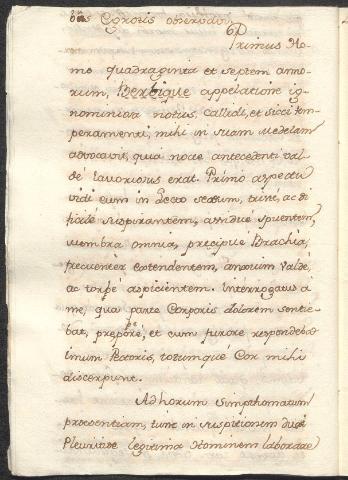 bus Egrotis observavi.
Primus Ho-
mo quadraginta et septem anno-
rum, Berbique appelatione ig-
nominiosa notus, callidi, et sicci tem-
peramenti, mihi in suam medelam
advocavit, quia nocte antecedenti val-
de laboriosus erat. Primo aspectu
vidi eum in Lecto sedtum, triste, ac di-
ficile suspirantem, assidue spuentem,
membra omnia, precipue Brachia,
frecuenter extendentem, anxium valde,
ac torpe aspicientem. Interrogatus a
me, qua parte Corporis dolorem sentie-
bat, prepore, et cum furore respondebat
imum Pectoris, totumque Cor mihi
discerpunt.
Ad horum simpthomatum
praesentiam, tunc in suspitionem duci
Pleuritide legitima Hominem laborare